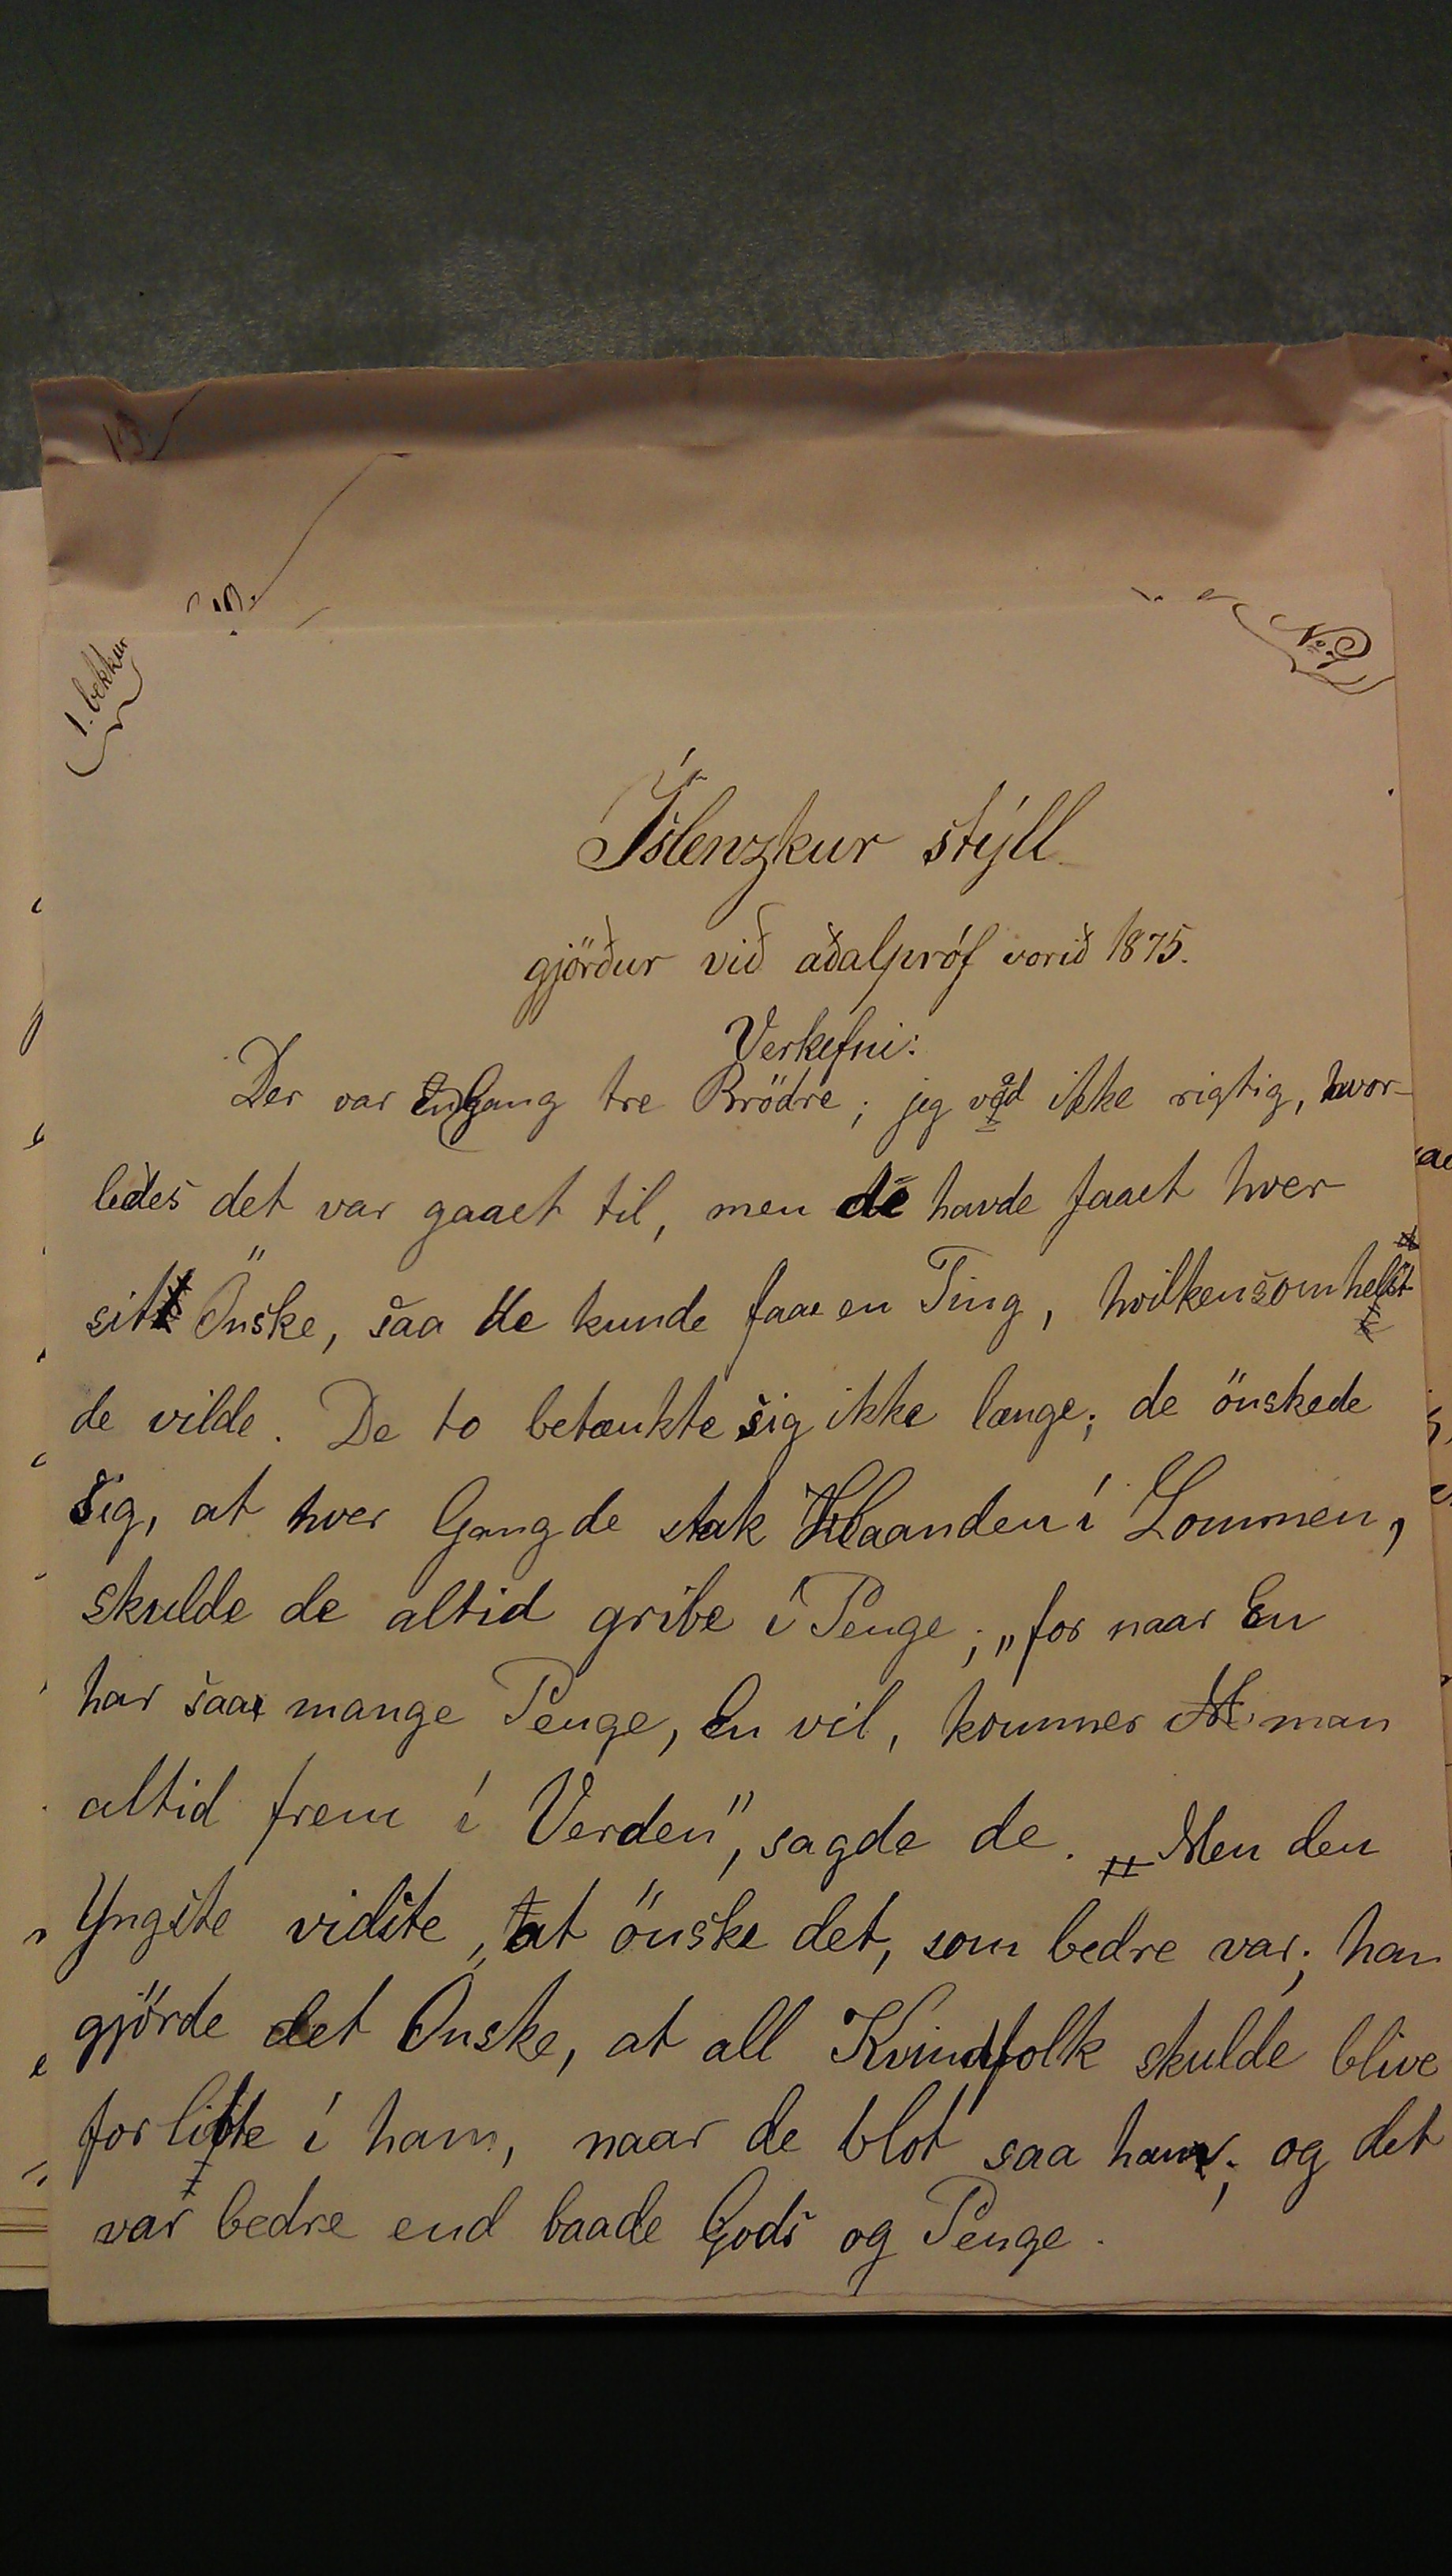 1. bekkur
No 7
Íslenzkur stýll
gjörður við aðalpróf vorið 1875.
Verkefni:
Der var engang tre Brödre; jeg véd ikke rigtig, hvor-
ledes det var gaaet til, men de havde faaet hver
sit Önske, saa de kunde faae en Ting, hvilkensomhelst
de vilde. De to betænkte sig ikke længe; de önskede
sig, at hver Gang de stak Haanden i Lommen,
skulde de altid gribe i Penge; „for naar En
har saa mange Penge, En vil, kommer man
altid frem i Verden", sagde de. Men den
Yngste vidste, at önske det, som bedre var; han
gjörde det Onske, at all Kvindfolk skulde blive
forlibte i ham, naar de blot saa ham; og det
var bedre end baade Gods og Penge.